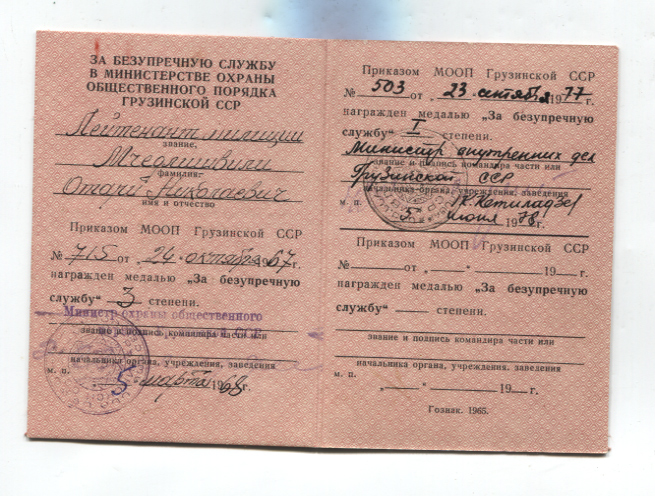 ЗА БЕЗУПРЕЧНУЮ СЛУЖБУ
В МИНИСТЕРСТВЕ ОХРАНЫ
ОБЩЕСТВЕННОГО ПОРЯДКА
ГРУЗИНСКОЙ ССР
Лейтенант милиции
звание,
Мчедлишвили
фамилия,
Отари Николаевич
имя и отчество
Приказом МООП Грузинской ССР
№ 715 от „ 24 “ октября 67 г.
награжден медалью „За безупречную
службу“ 3 степени.
Министр охраны общественного
ССР
звание и подпись командира части или
начальника органа, учреждения, заведения
м. п. 5 марта 1968 г.
Приказом МООП Грузинской ССР
№ 503 от „ 23 “ сентября 1977 г.
награжден медалью „За безупречную
службу“ I степени.
Министр внутренних дел
звание и подпись командира части или
Грузинской ССР
начальника органа, учреждения, заведения
м. п. 5 июня 1978 г.
Приказом МООП Грузинской ССР
№ — от „ — “ — 19 — г.
награжден медалью „За безупречную
службу“ — степени.
звание и подпись командира части или
начальника органа, учреждения, заведения
м. п. „ — “ — 19 — г.
Гознак. 1965.